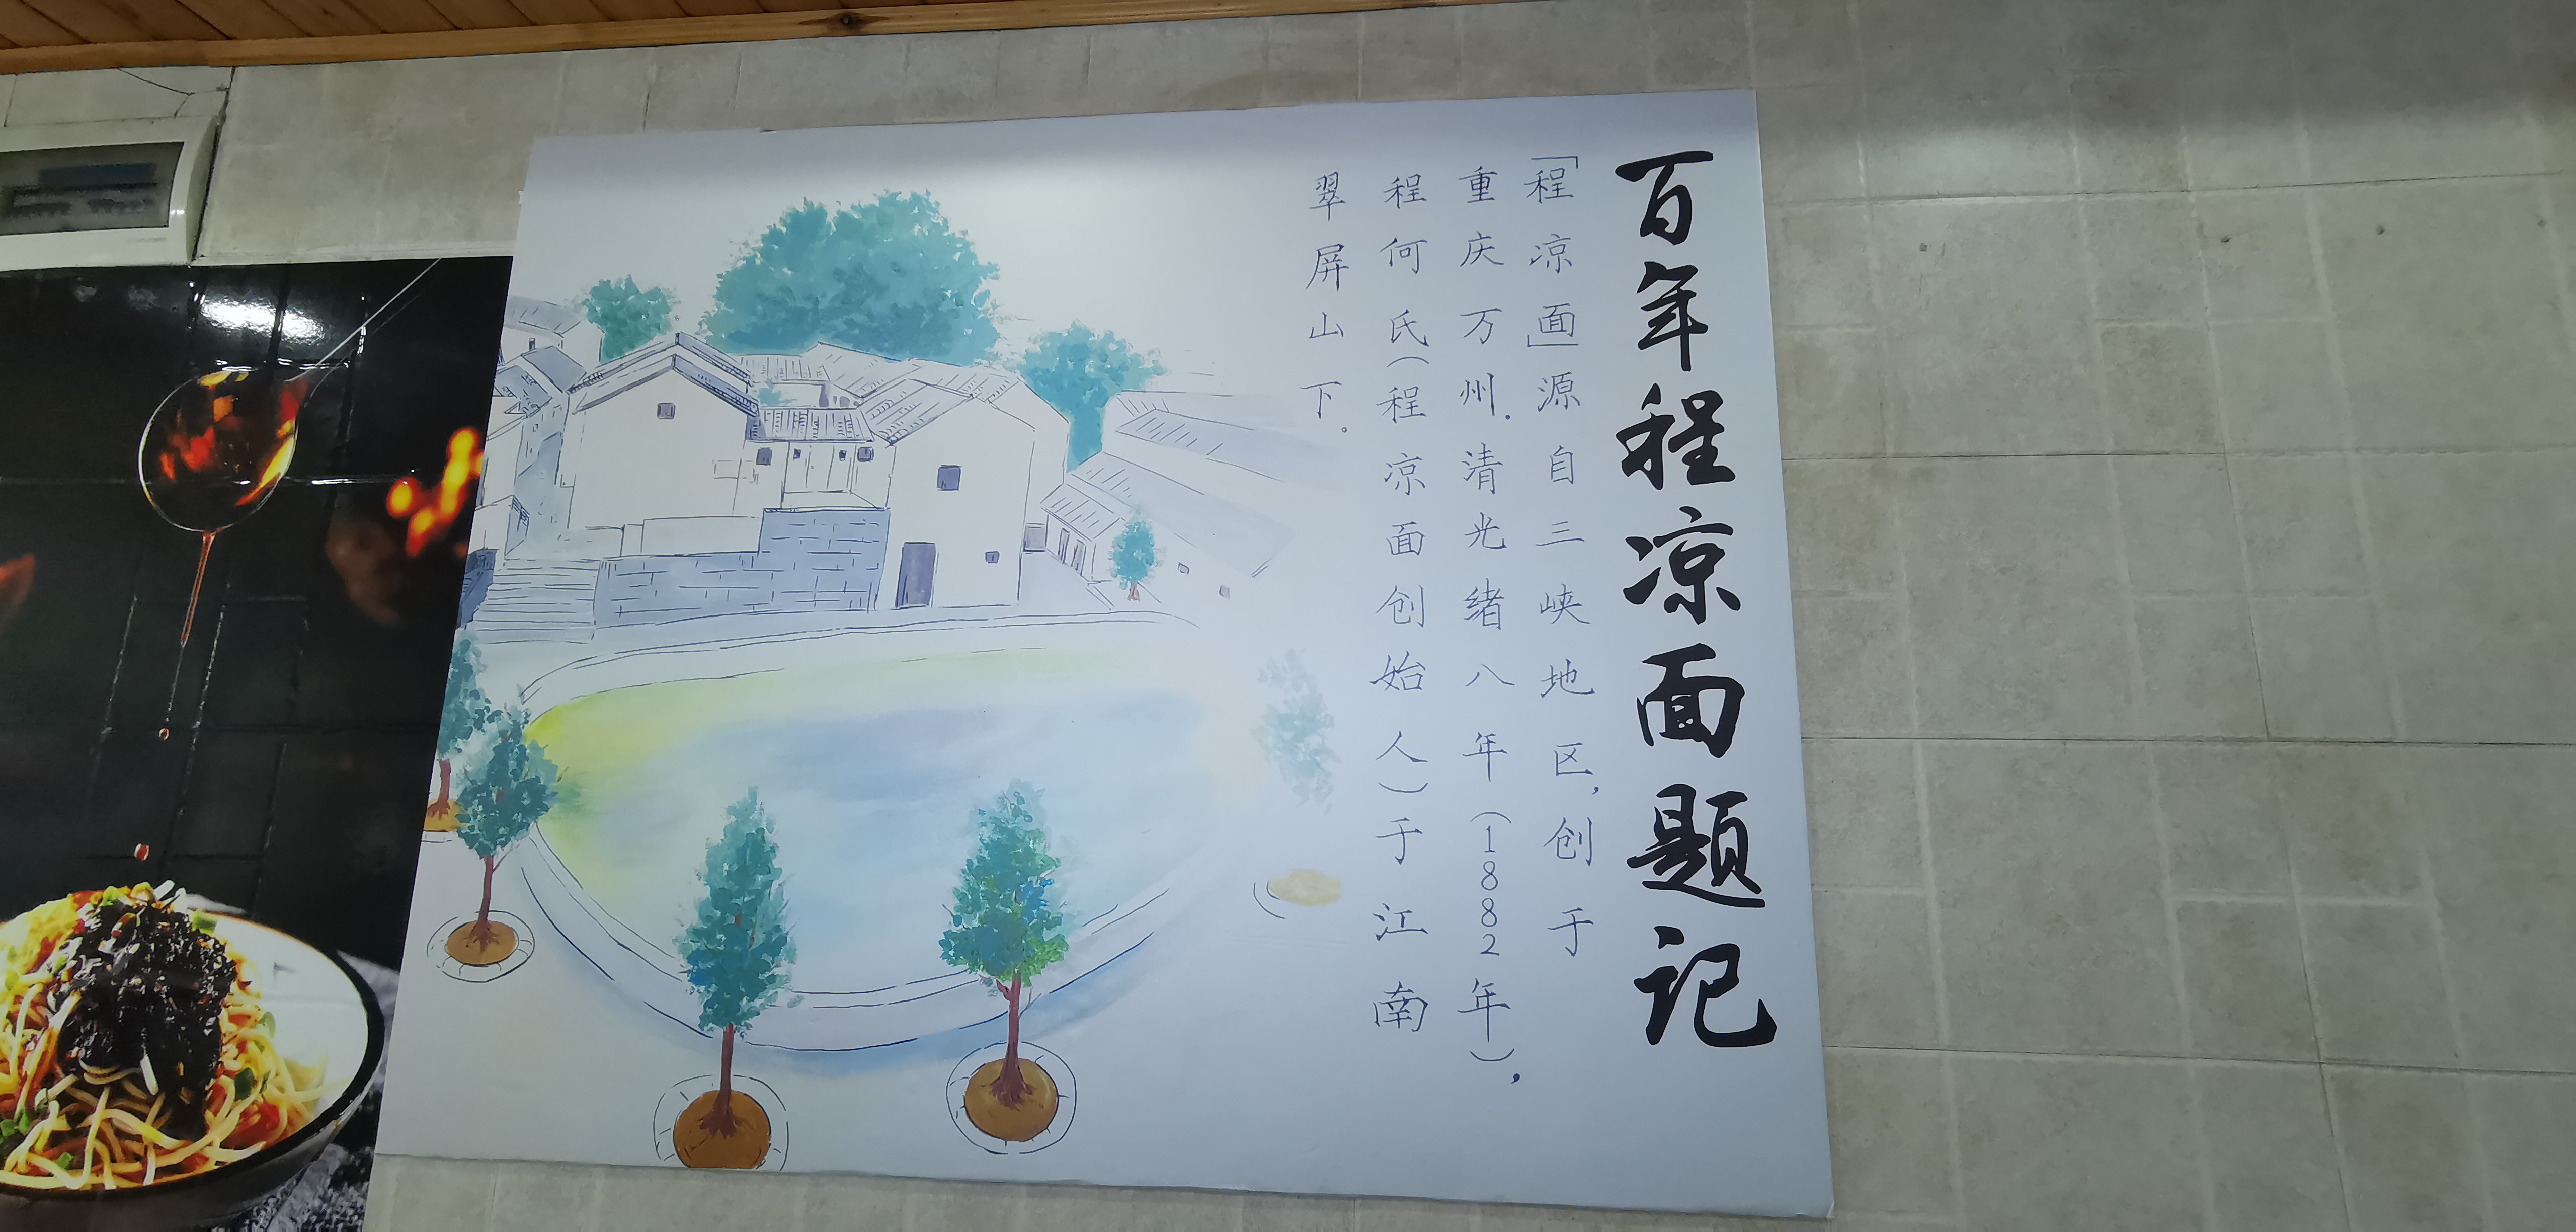 百年程凉面题记
「程凉面」源自三峡地区,创于
重庆万州.清光绪八年(1882年),
程何氏(程凉面创始人)于江南
翠屏山下。